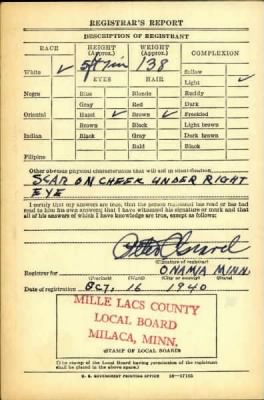 REGISTRAR'S REPORT
DESCRIPTION OF REGISTRANT
RACE HEIGHT (Approx.) WEIGHT (Approx.) COMPLEXION
5 ft 138 Sallow
White ✓ EYES HAIR Light ✓
Negro Blue Blonde Ruddy
Gray Red Dark
Oriental Hazel ✓ Brown ✓ Freckled
Brown Black Light brown
Indian Black Gray Dark brown
Bald Black
Filipino
Other obvious physical characteristics that will aid in identification
SCAR ON CHEEK UNDER RIGHT
EYE
I certify that my answers are true; that the person registered has read or has had
read to him his own answers; that I have witnessed his signature or mark and that
all of his answers of which I have knowledge are true, except as follows:
(Signature of registrar)
Registrar for ONAMIA MINN.
(Precinct) (Ward) (City or county) (State)
Date of registration OCT. 16 1940
MILLE LACS COUNTY
LOCAL BOARD
MILACA, MINN.
(STAMP OF LOCAL BOARD)
(The stamp of the Local Board having jurisdiction of the registrant
shall be placed in the above space.)
U. S. GOVERNMENT PRINTING OFFICE 16—17105